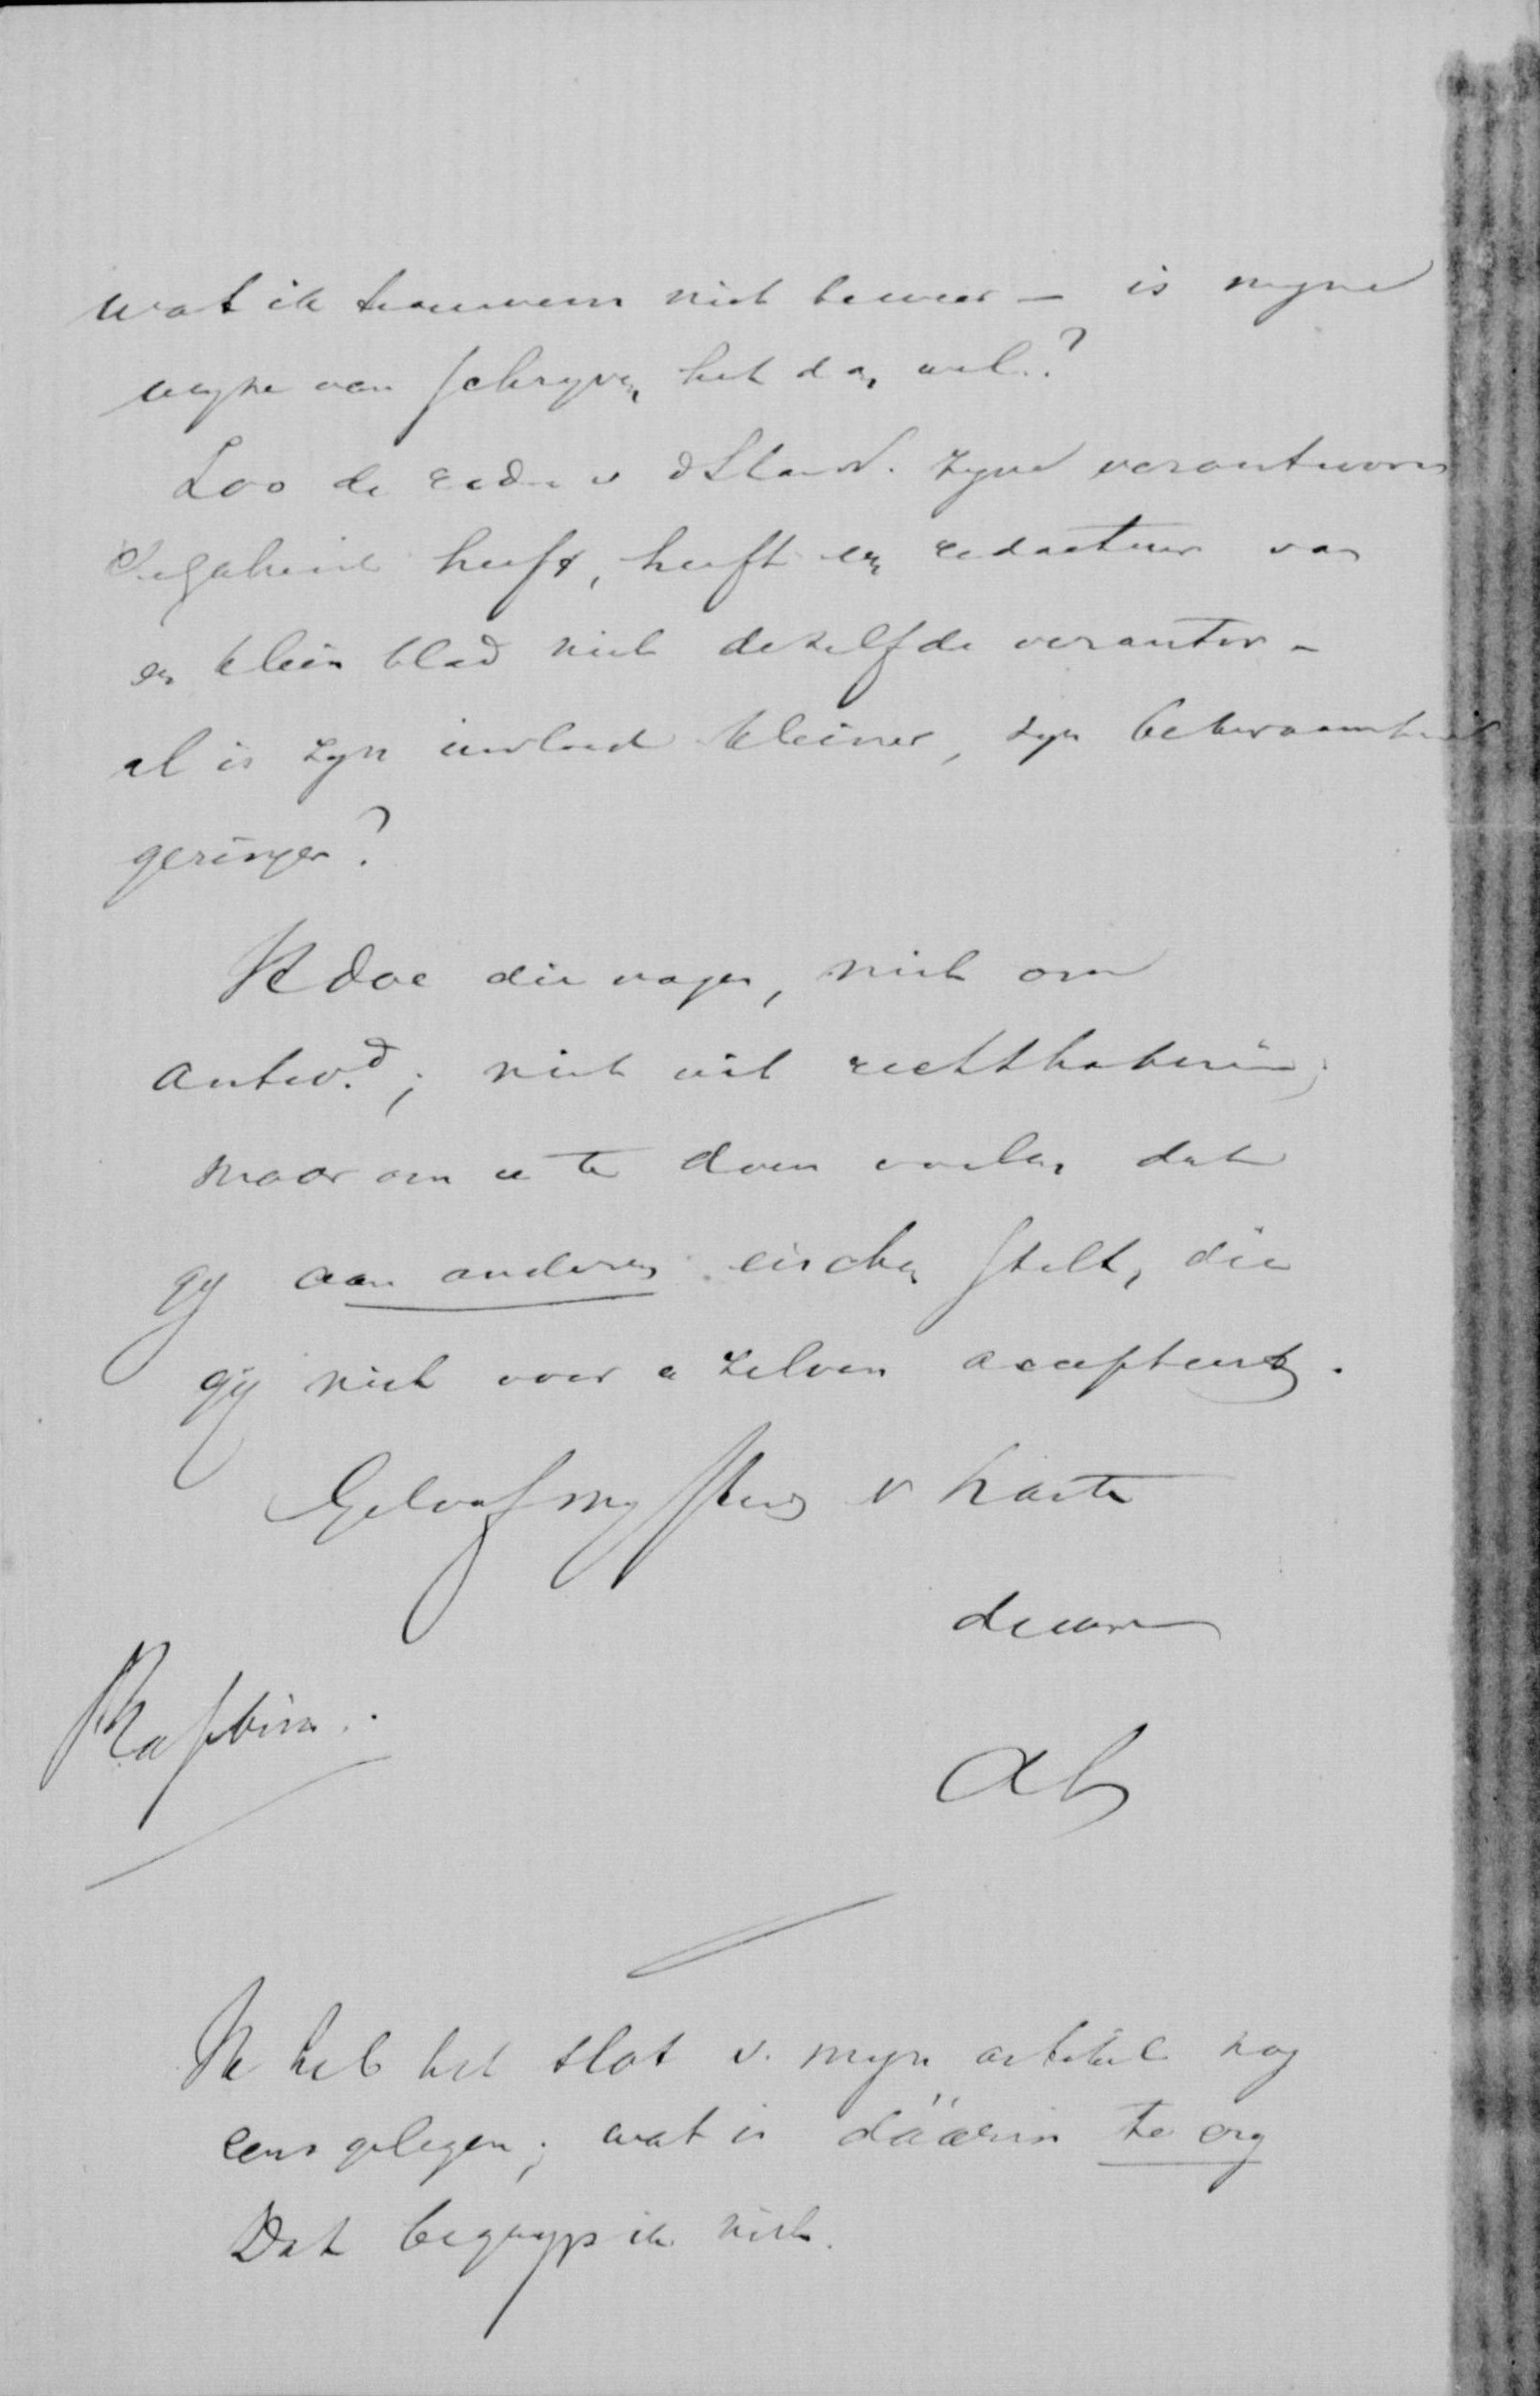 wat ik trouwens niet beweer – is myne
wyze van schryven het dan wel?
Zoo de redr v d Stand. zyne verantwoor
delykheid heeft, heeft een redacteur van
een klein blad niet dezelfde verantw. –
al is zyn invloed kleiner, zyn bekwaamheid
geringer?
Ik doe die vragen, niet om
antwd; niet uit rechthaberei;
maar om u te doen voelen dat
gy aan anderen eischen stelt, die
gij niet voor u zelven accepteert.
Geloof my steeds v harte
de uwe
Ik heb het slot v. myn artikel nog
eens gelezen; wat is dáárin te erg
Dat begryp ik niet.